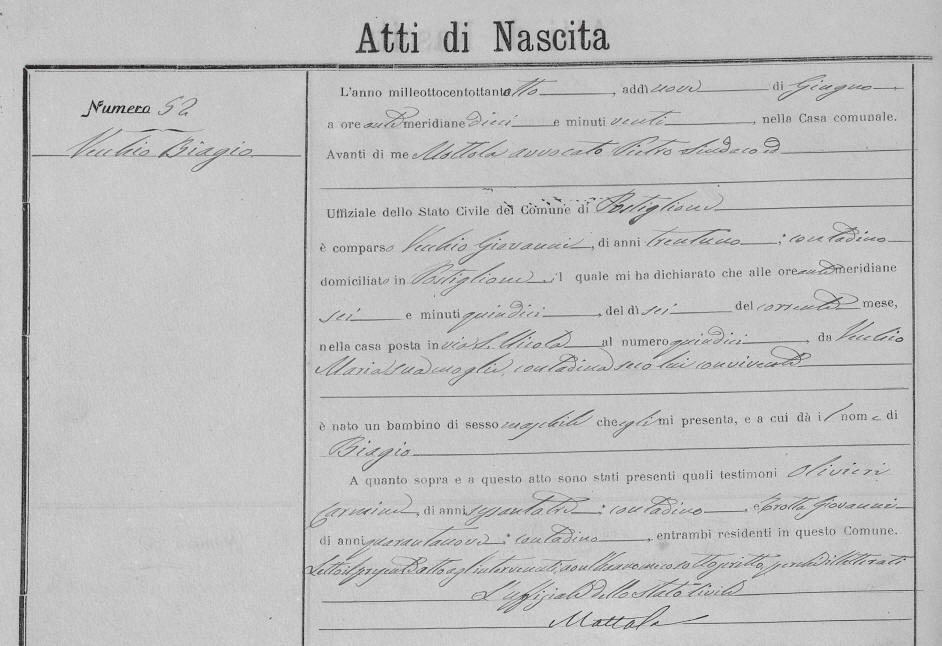 Atti di Nascita
Numero 52
Vecchio Biagio
L'anno milleottocentottantotto, addì nove di Giugno,
a ore antimeridiane dieci e minuti venti, nella Casa comunale.
Avanti di me Mottola avvocato Pietro Sindaco ed
Uffiziale dello Stato Civile del Comune di Postiglione
è comparso Vecchio Giovanni, di anni trentuno; contadino
domiciliato in Postiglione, il quale mi ha dichiarato che alle ore antimeridiane
sei e minuti quindici, del dì sei del corrente mese,
nella casa posta in via S. Nicola al numero quindici, da Vecchio
Maria sua moglie, contadina seco lui convivente
è nato un bambino di sesso maschile che egli mi presenta, e a cui dà il nome di
Biagio
A quanto sopra e a questo atto sono stati presenti quali testimoni Olivieri
Carmine, di anni sessantatre; contadino, e Protta Giovanni
di anni quarantanove; contadino, entrambi residenti in questo Comune.
Letto il presente atto agl'intervenuti non l'hanno meco sottoscritto, perché illetterati
L'uffiziale dello stato Civile
Mottola